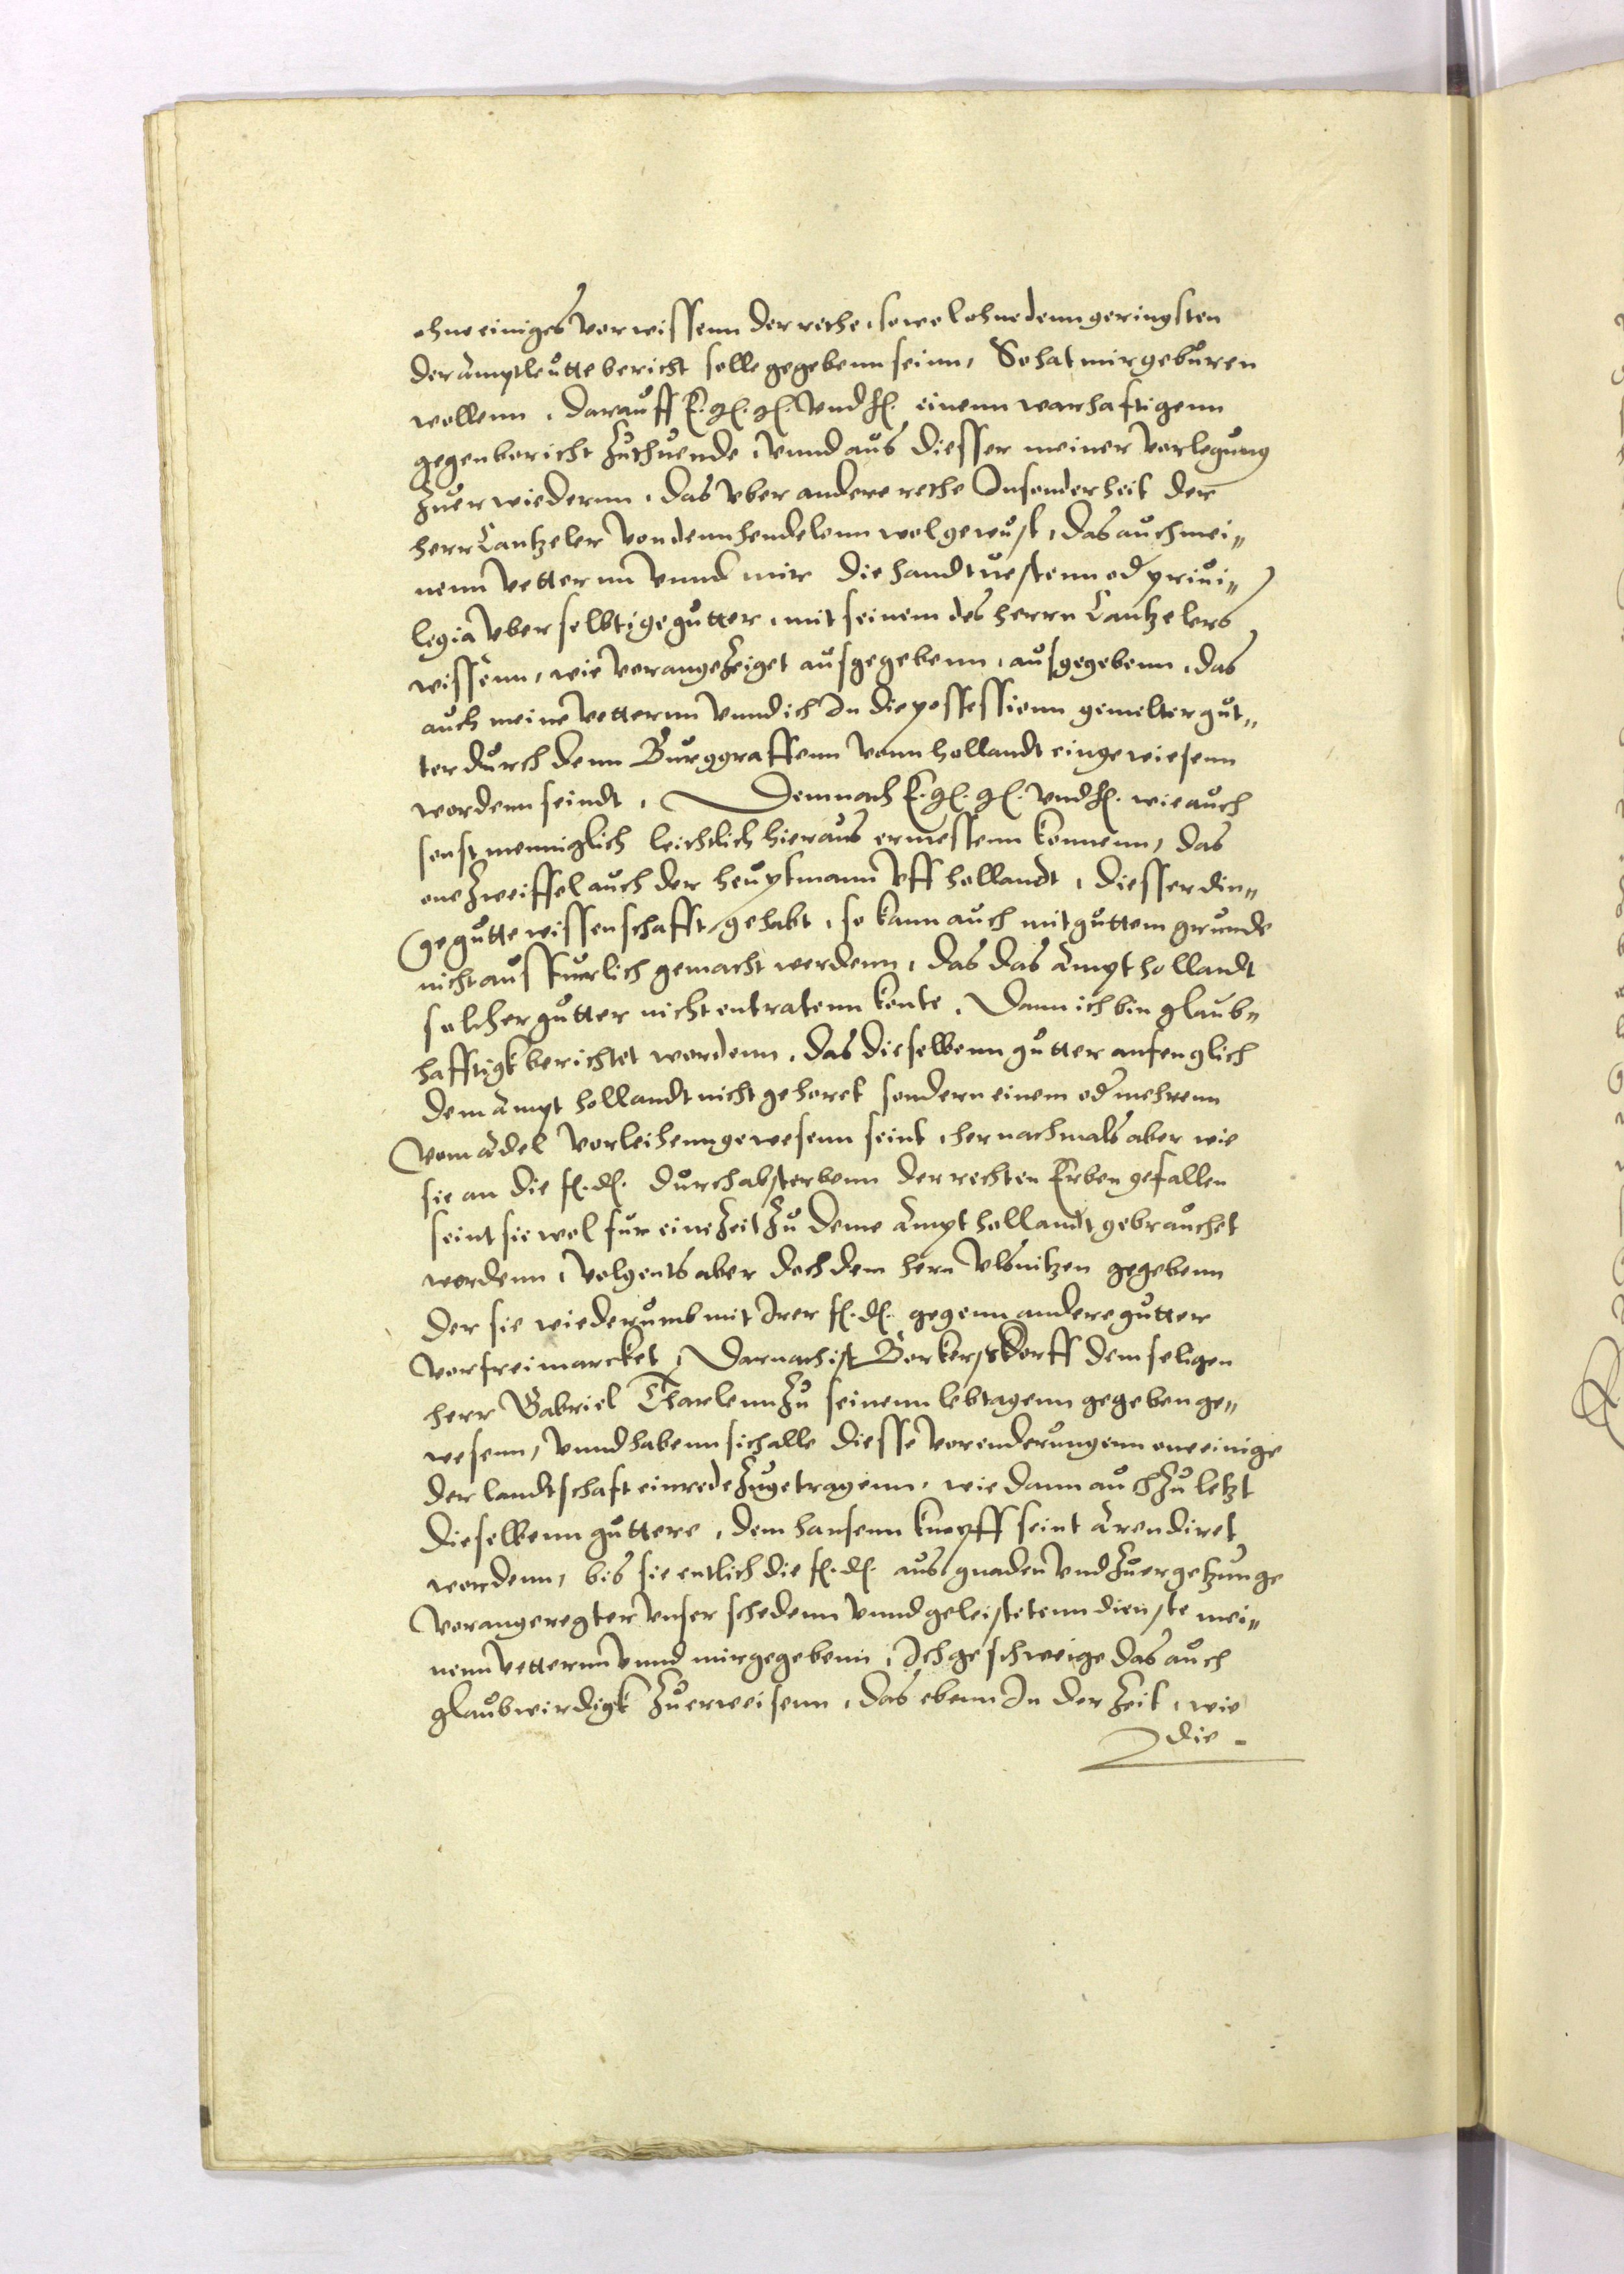 ohne einiges vorwissenn der rethe, sowol ohne denn geringsten
der Amptleutte bericht solle gegebenn seinn, So hat mir geburen
wollenn, darauff E. G. G. vnd H. einenn warhaftigenn
gegenbericht zuthuende, vnnd aus diesser meiner vorlegung
zuerwiedernn, das vber andere rethe Insonderheit der
herr Cantzeler von denn hendelenn wolgewust, das auch mei„
nenn vetternn vnnd mir die handtuestenn od priui„
legia vber selbtige gutter, mit seinem des herrn Cantzelers
wissenn, wie vorangezeiget ausgegebenn, ausgegebenn, das
auch meine vetternn vnnd ich In die possessionn gemelter gut„
ter durch denn Burggraffenn vonn hollandt eingewiesenn
wordenn seindt, Demnach E. G. G. vnd H. wie auch
sonst menniglich leichtlich hieraus ermessenn konnenn, das
one zweiffel auch der heuptmann vff hollandt, diesser din„
ge gutte wissenschafft gehabt, so kann auch mit guttem grunde
nicht ausfurlich gemacht werdenn, das das Ampt hollandt
solcher gutter nicht entratenn konte, Dann ich bin glaub„
hafftigk berichtet wordenn, das dieselbenn gutter anfenglich
dem Ampt hollandt nicht gehoret sondern einem od mehrenn
vom Adel vorleihenn gewesenn seint, hernachmals aber wie
sie an die f. d. durch absterbenn der rechten Erben gefallen
seint sie wol fur eine zeit zu deme Ampt hollandt gebrauchet
wordenn, volgents aber doch dem hern vlsnitzen gegebenn
der sie wiederumb mit Irer f. d. gegenn andere gutter
vorfreimarcket, Darnach ist Borkersdorff dem seligen
herr Gabriel Tharlenn zu seinenn lebtagenn gegeben ge„
wesenn, vnnd habenn sich alle diesse vorenderungenn one einige
der landtschaft einrede zugetragenn, wie dann auch zu letzt
dieselbenn guttere, dem hansenn knopff seint Arendiret
wordenn, bis sie entlich die f. d. aus gnaden vnd zuergetzunge
vorangeregter vnser schedenn vnnd geleistetenn dienste mei„
nenn vetternn vnnd mir gegebenn, Ich geschweige das auch
glaubwirdigk zuerweisenn, das ebenn In der zeit, wie
die